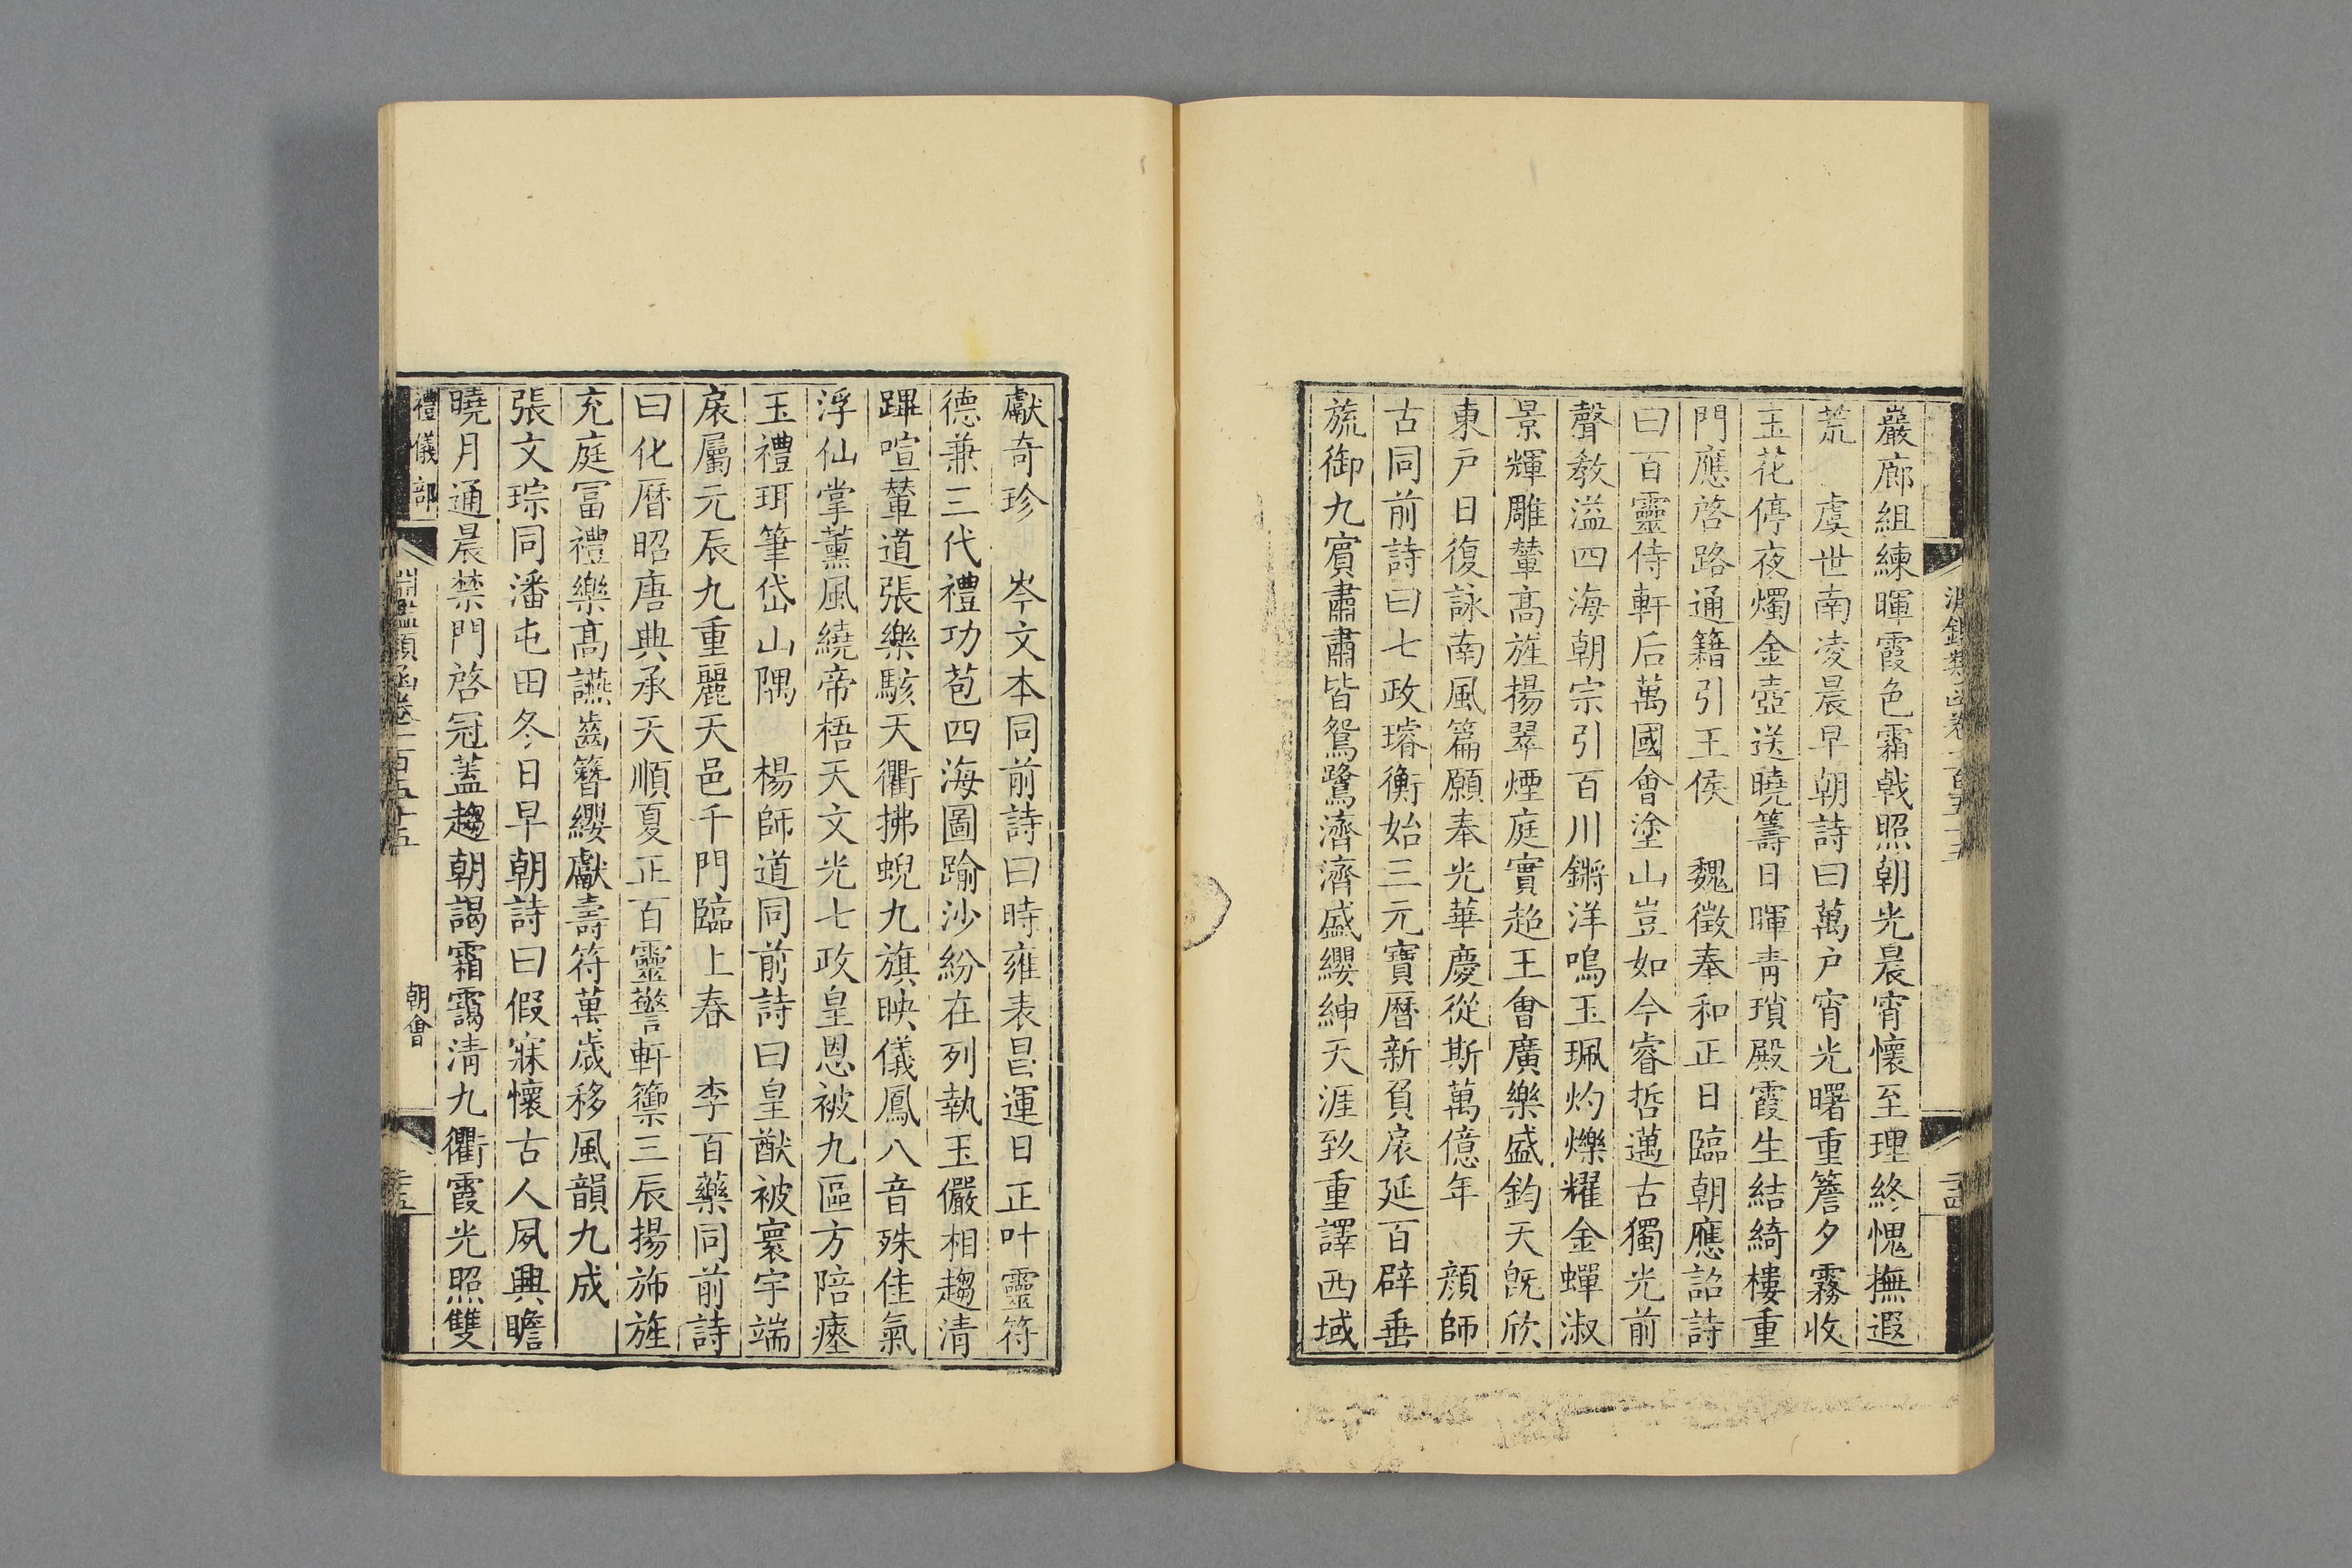 巖廊組練暉霞色霜戟照朝光晨宵懷至理終愧撫遐
荒　虞世南凌晨早朝詩曰萬户宵光曙重簷夕霧收
玉花停夜燭金壺送曉籌日暉青瑣殿霞生結綺樓重
門應啓路通籍引王侯　魏徵奉和正日臨朝應詔詩
曰百靈侍軒后萬國會塗山豈如今睿哲邁古獨光前
聲教溢四海朝宗引百川鏘洋鳴玉珮灼爍耀金蟬淑
景輝雕輦高旌揚翠煙庭實超王會廣樂盛鈞天旣欣
東户日復詠南風篇願奉光華慶從斯萬億年　顔師
古同前詩曰七政璿衡始三元寶曆新負扆延百辟垂
旒御九賔肅肅皆鴛鷺濟濟盛纓紳天涯致重譯西域
獻奇珍　岑文本同前詩曰時雍表昌運日正叶靈符
德兼三代禮功苞四海圖踰沙紛在列執玉儼相趨清
蹕喧輦道張樂駭天衢拂蜺九旗映儀鳳八音殊佳氣
浮仙掌薰風繞帝梧天文光七政皇恩被九區方陪瘞
玉禮珥筆岱山隅　楊師道同前詩曰皇猷被寰宇端
扆屬元辰九重麗天邑千門臨上春　李百藥同前詩
曰化曆昭唐典承天順夏正百靈警軒籞三辰揚斾旌
充庭富禮樂高讌齒簪纓獻壽符萬歲移風韻九成
張文琮同潘屯田冬日早朝詩曰假寐懷古人夙興瞻
曉月通晨禁門啓冠蓋趨朝謁霜靄清九衢霞光照雙
禮儀部
淵鑑類函卷一百五十五
朝會